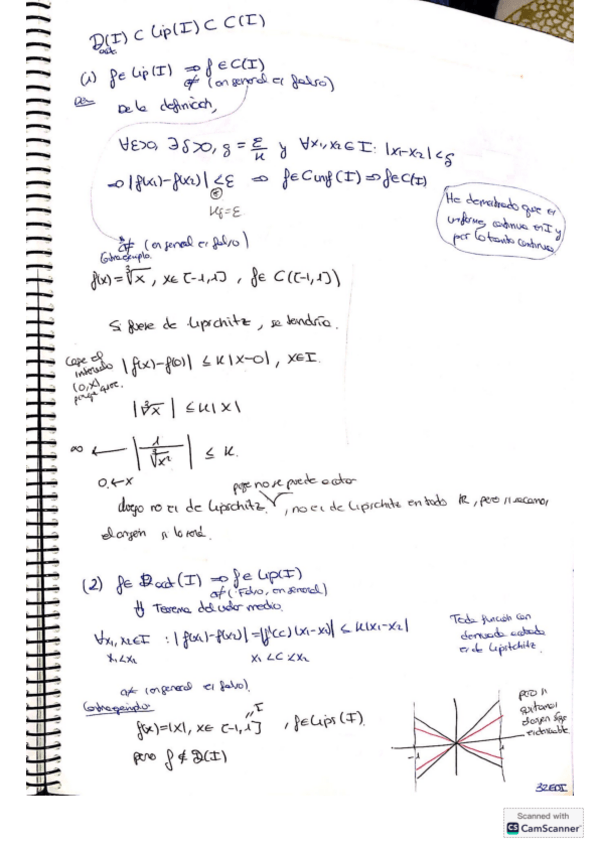 D(I) ⊂ Lip(I) ⊂ C(I)
acot
(1) f∈Lip(I) ⇒ f∈C(I)
⇍ (en general es falso)
De
De la definición,
∀ε>0, ∃δ>0, δ = ε/k y ∀x₁,x₂∈I: |x₁-x₂|<δ
⇒ |f(x₁)-f(x₂)| < ε ⇒ f∈Cunf(I) ⇒ f∈C(I)
kδ=ε
He demostrado que es
uniforme continua en I y
por lo tanto continua.
⇍ (en general es falso)
Contraejemplo.
f(x)=∛x, x∈[-1,1], f∈C([-1,1])
Si fuese de Lipschitz, se tendría.
Cojo el
intervalo
(0,x)
porque quiero.
|f(x)-f(0)| ≤ k|x-0|, x∈I.
|∛x| ≤ k|x|
∞ ← |1/∛x²| ≤ k.
0←x
pues no se puede acotar
Luego no es de Lipschitz, no es de Lipschitz en todo ℝ, pero si sacamos
el origen si lo será.
(2) f∈Dacot(I) ⇒ f∈Lip(I)
⇍ (Falso, en general)
⇓ Teorema del valor medio.
∀x₁,x₂∈I : |f(x₁)-f(x₂)| = |f'(c)(x₁-x₂)| ≤ k|x₁-x₂|
x₁<x₂ x₁<c<x₂
Toda función con
derivada acotada
es de Lipschitz.
⇍ (en general es falso).
Contraejemplo
f(x)=|x|, x∈[-1,1] , f∈Lips(I).
I
pero f∉D(I)
pero si
quitamos
el origen sigo
-1
1
Scanned with
CS CamScanner